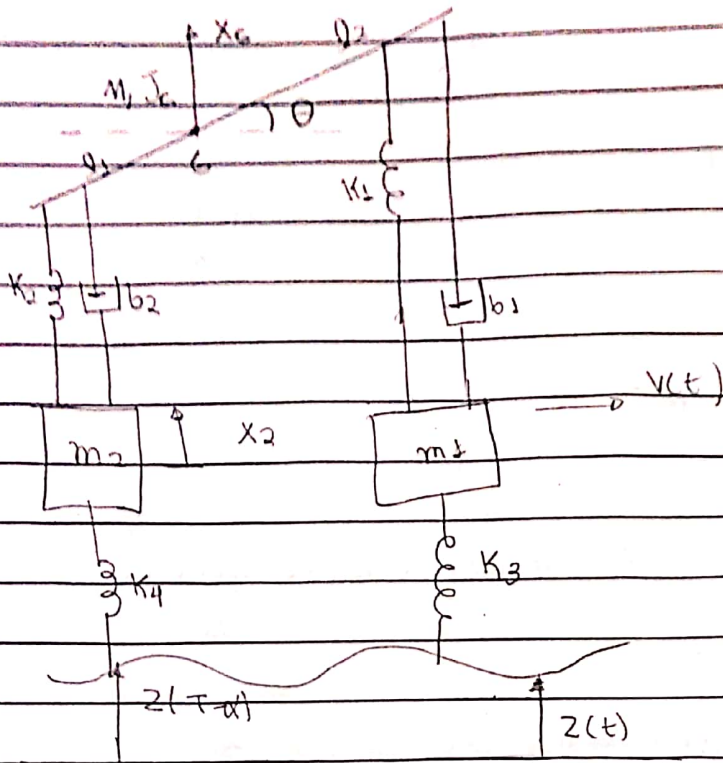 XG
D2
M, JG
θ
D1
G
K1
K2
b2
b1
V(t)
m2
X2
m1
K4
K3
Z(T-α)
Z(t)